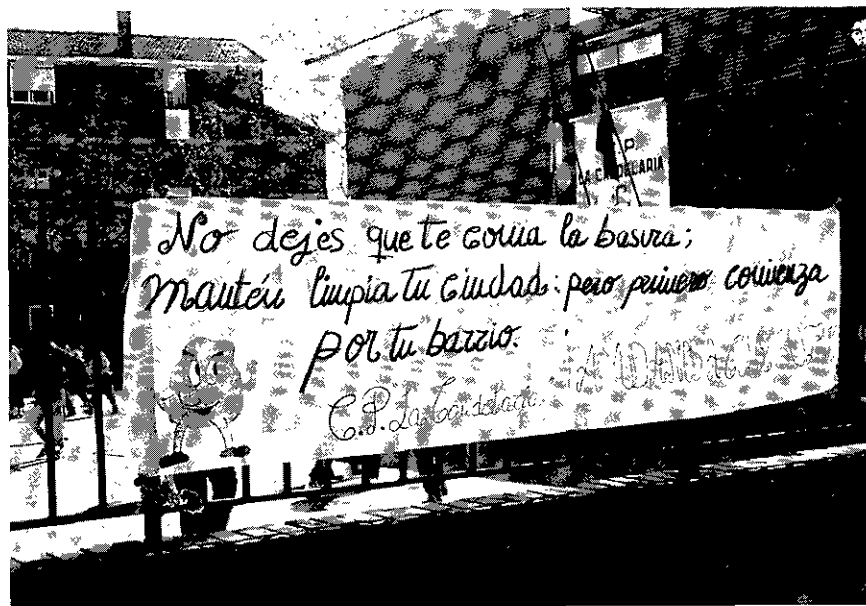 P
LA CANDELARIA
No dejes que te coma la basura;
Mantén limpia tu ciudad: pero primero comienza
por tu barrio.
C.P. La Candelaria